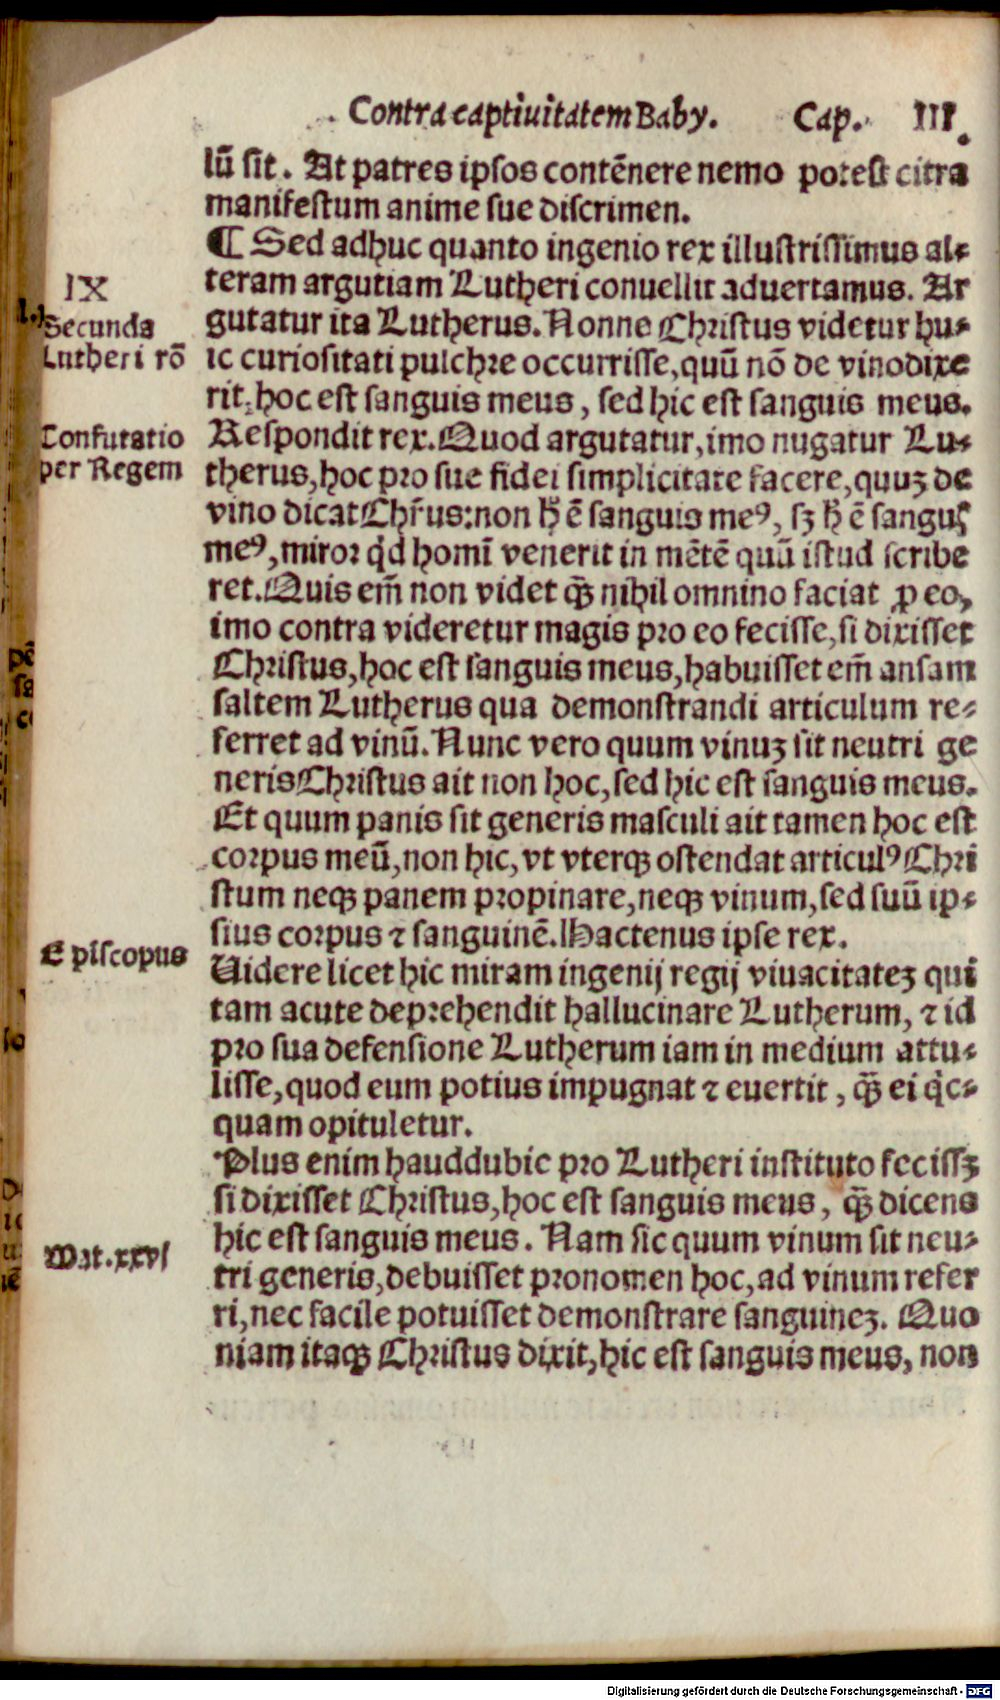 Contra captiuitatem Baby. Cap. III.
lū sit. At patres ipsos contēnere nemo potest citra
manifestum anime sue discrimen.
¶ Sed adhuc quanto ingenio rex illustrissimus al-
teram argutiam Lutheri conuellit aduertamus. Ar
gutatur ita Lutherus. Nonne Christus videtur hu-
ic curiositati pulchre occurrisse, quū nō de vino dixe
rit, hoc est sanguis meus, sed hic est sanguis meus.
Respondit rex. Quod argutatur, imo nugatur Lu-
therus, hoc pro sue fidei simplicitate facere, quuꝫ de
vino dicat Chr̄us: non h̄ ē sanguis meꝰ, sꝫ h̄ ē sanguis
meꝰ, miror qd homī venerit in mētē quū istud scribe
ret. Quis em̄ non videt ꝙ̄ nihil omnino faciat ꝓ eo,
imo contra videretur magis pro eo fecisse, si dixisset
Christus, hoc est sanguis meus, habuisset em̄ ansam
saltem Lutherus qua demonstrandi articulum re-
ferret ad vinū. Nunc vero quum vinuꝫ sit neutri ge
neris Christus ait non hoc, sed hic est sanguis meus.
Et quum panis sit generis masculi ait tamen hoc est
corpus meū, non hic, vt vterqꝫ ostendat articulꝰ Chri
stum neqꝫ panem propinare, neqꝫ vinum, sed suū ip-
sius corpus ⁊ sanguinē. Hactenus ipse rex.
Videre licet hic miram ingenij regij viuacitateꝫ qui
tam acute deprehendit hallucinare Lutherum, ⁊ id
pro sua defensione Lutherum iam in medium attu-
lisse, quod eum potius impugnat ⁊ euertit, ꝙ̄ ei qͥc-
quam opituletur.
Plus enim hauddubie pro Lutheri instituto fecissꝫ
si dixisset Christus, hoc est sanguis meus, ꝙ̄ dicens
hic est sanguis meus. Nam sic quum vinum sit neu-
tri generis, debuisset pronomen hoc, ad vinum refer
ri, nec facile potuisset demonstrare sanguineꝫ. Quo
niam itaqꝫ Christus dixit, hic est sanguis meus, non
IX
Secunda
Lutheri rō
Confutatio
per Regem
Episcopus
Mat. xxvi
Digitalisierung gefördert durch die Deutsche Forschungsgemeinschaft - DFG